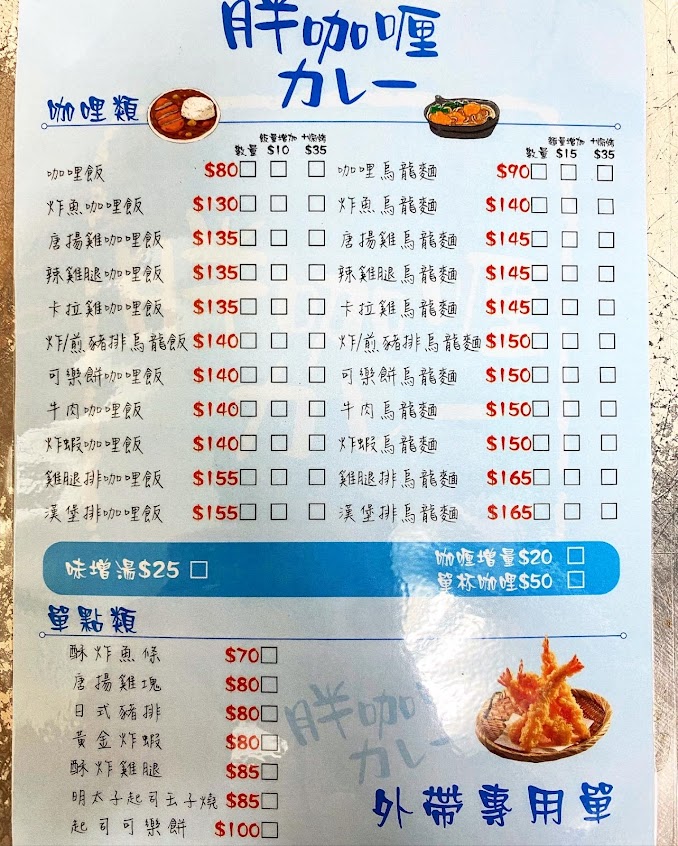 胖咖喱
カレー
咖哩類
數量 飯量增加 $10 +焗烤 $35
咖哩飯 $80
炸魚咖哩飯 $130
唐揚雞咖哩飯 $135
辣雞腿咖哩飯 $135
卡拉雞咖哩飯 $135
炸/煎豬排烏龍飯 $140
可樂餅咖哩飯 $140
牛肉咖哩飯 $140
炸蝦咖哩飯 $140
雞腿排咖哩飯 $155
漢堡排咖哩飯 $155
數量 麵量增加 $15 +焗烤 $35
咖哩烏龍麵 $90
炸魚烏龍麵 $140
唐揚雞烏龍麵 $145
辣雞腿烏龍麵 $145
卡拉雞烏龍麵 $145
炸/煎豬排烏龍麵 $150
可樂餅烏龍麵 $150
牛肉烏龍麵 $150
炸蝦烏龍麵 $150
雞腿排烏龍麵 $165
漢堡排烏龍麵 $165
味增湯$25
咖喱增量$20
單杯咖哩$50
單點類
酥炸魚條 $70
唐揚雞塊 $80
日式豬排 $80
黃金炸蝦 $80
酥炸雞腿 $85
明太子起司玉子燒 $85
起司可樂餅 $100
胖咖喱
カレー
外帶專用單